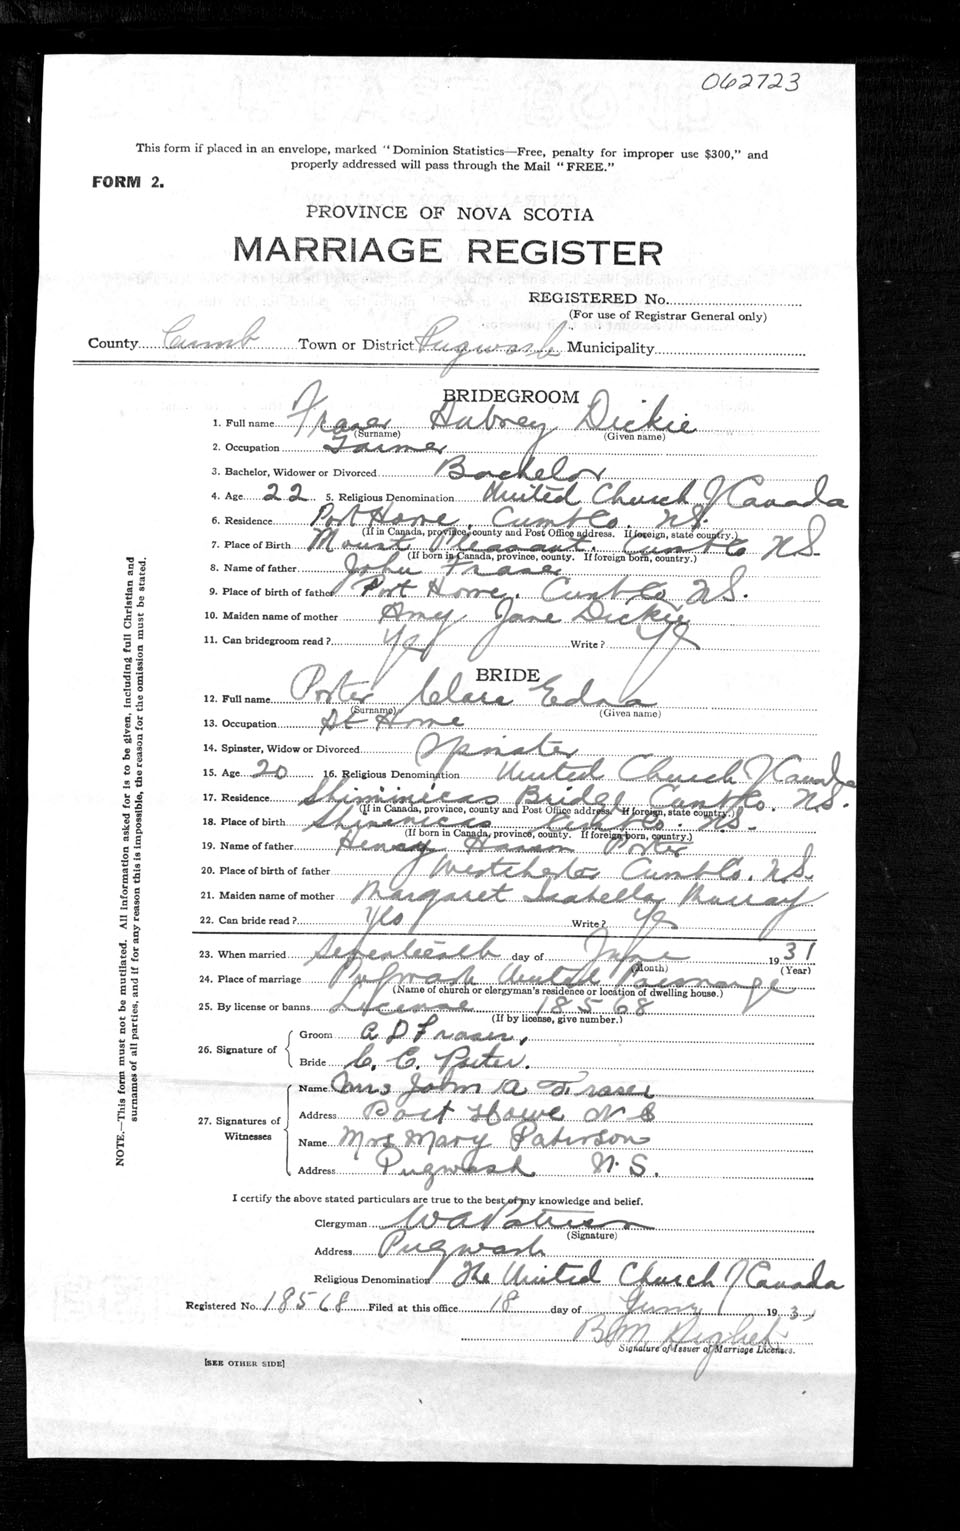 062723
This form if placed in an envelope, marked "Dominion Statistics—Free, penalty for improper use $300," and
properly addressed will pass through the Mail "FREE."
FORM 2.
PROVINCE OF NOVA SCOTIA
MARRIAGE REGISTER
REGISTERED No.
(For use of Registrar General only)
County Cumb Town or District Pugwash Municipality
BRIDEGROOM
1. Full name Fraser Aubrey Dickie
(Surname) (Given name)
2. Occupation Farmer
3. Bachelor, Widower or Divorced Bachelor
4. Age 22 5. Religious Denomination United Church of Canada
6. Residence Port Howe, Cumb Co. N.S.
(If in Canada, province, county and Post Office address. If foreign, state country.)
7. Place of Birth Mount Pleasant, Cumb Co N.S.
(If born in Canada, province, county. If foreign born, country.)
8. Name of father John Fraser
9. Place of birth of father Port Howe, Cumb Co N.S.
10. Maiden name of mother Amy Jane Dickie
11. Can bridegroom read? Yes Write? Yes
BRIDE
12. Full name Porter Clara Edna
(Surname) (Given name)
13. Occupation At Home
14. Spinster, Widow or Divorced Spinster
15. Age 20 16. Religious Denomination United Church of Canada
17. Residence Shinimicas Bridge Cumb Co. N.S.
(If in Canada, province, county and Post Office address. If foreign, state country.)
18. Place of birth Shinimicas Cumb Co. N.S.
(If born in Canada, province, county. If foreign born, country.)
19. Name of father Henry Porter
20. Place of birth of father Westchester Cumb Co. N.S.
21. Maiden name of mother Margaret Isabella Murray
22. Can bride read? Yes Write? Yes
23. When married Seventeenth day of June 1931
(Month) (Year)
24. Place of marriage Pugwash United Parsonage
(Name of church or clergyman's residence or location of dwelling house.)
25. By license or banns License 18568
(If by license, give number.)
26. Signature of
Groom A D Fraser,
Bride C. E. Porter.
27. Signatures of Witnesses
Name Mrs John A Fraser
Address Port Howe N S
Name Mrs Mary Paterson
Address Pugwash N.S.
I certify the above stated particulars are true to the best of my knowledge and belief.
Clergyman W A Paterson
(Signature)
Address Pugwash
Religious Denomination The United Church of Canada
Registered No. 18568 Filed at this office 18 day of June 193
B M
Signature of Issuer of Marriage Licenses.
[SEE OTHER SIDE]
NOTE.—This form must not be mutilated. All information asked for is to be given, including full Christian and
surnames of all parties, and if for any reason this is impossible, the reason for the omission must be stated.